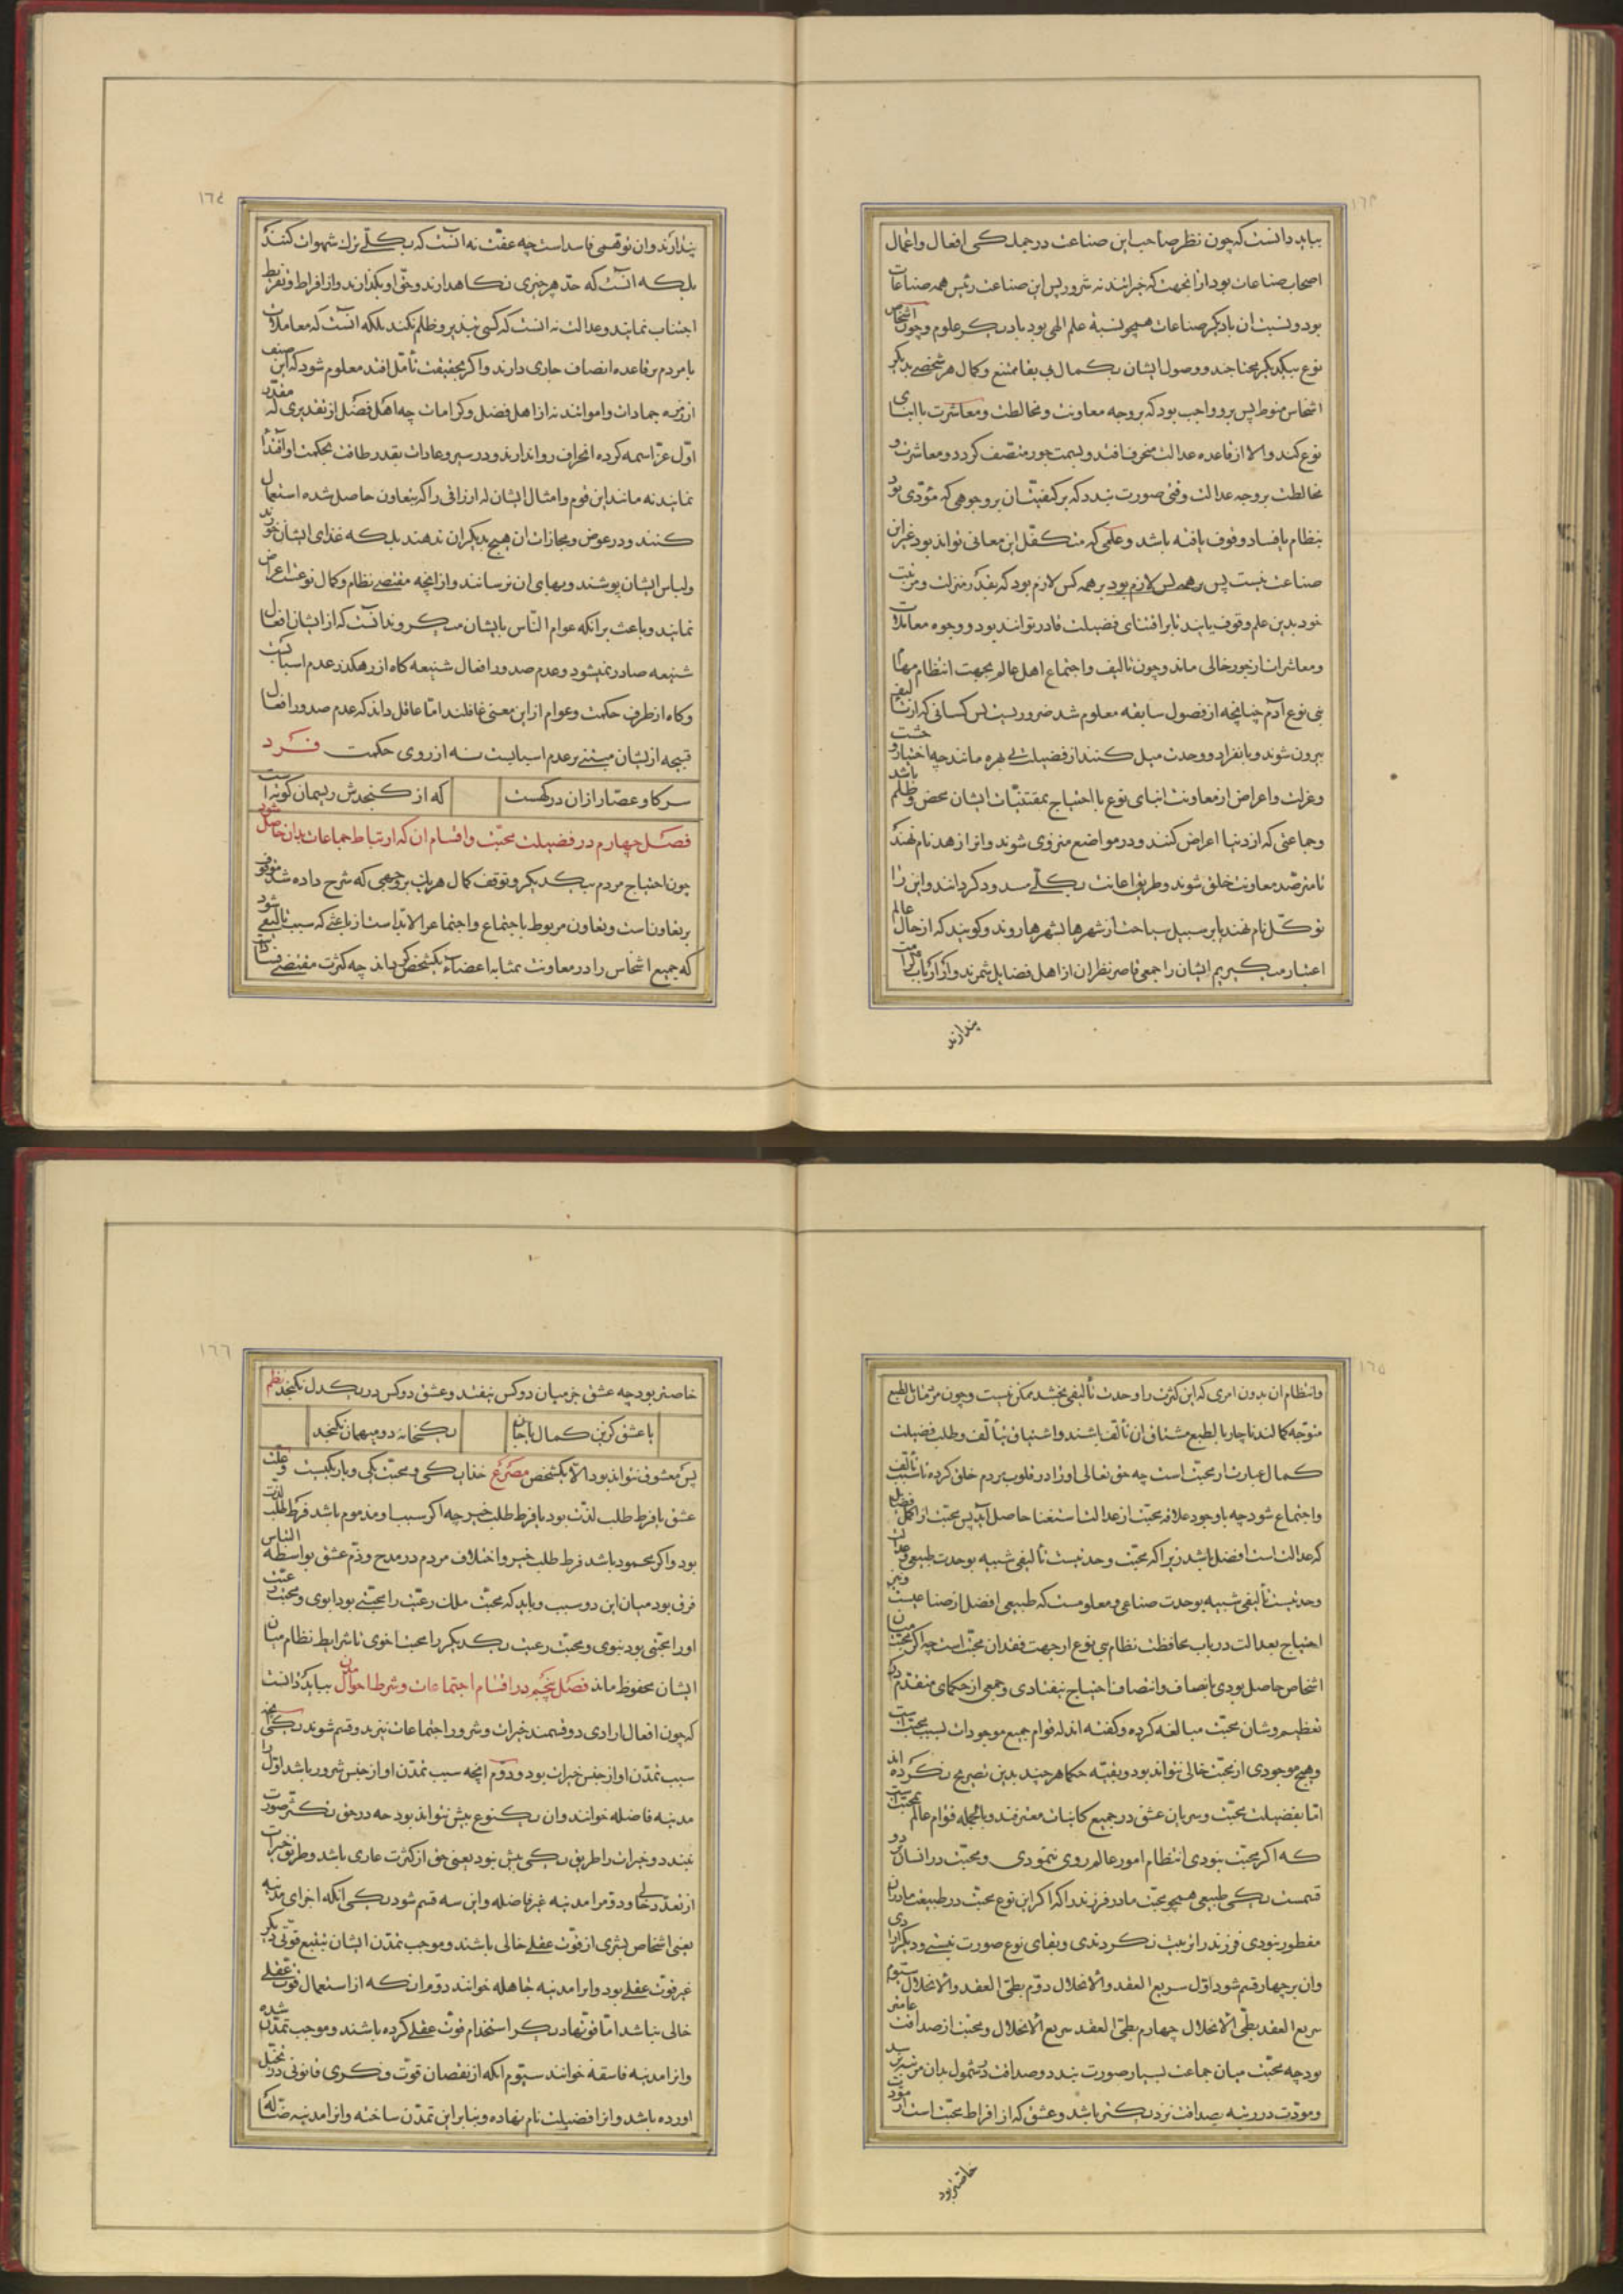 ١٦٣
بباید دانست که چون نظر صاحب این صناعت در جملکی افعال و اعمال
اصحاب صناعات بود از انجهت که خیراتند نه شرور پس این صناعت رئیس همه صناعات
بود و نسبت ان بادیکر صناعات همچو نسبة علم الهی بود بادیکر علوم و چون اشخاص
نوع بیکدیکر محتاجند و وصول ایشان بکمال بی بقا ممتنع و کمال هر شخصی بدیکر
اشخاص منوط پس برو واجب بود که بر وجه معاونت و مخالطت و معاشرت با ابنای
نوع کند والا از قاعده عدالت منحرف افتد و بسمت جور متصف کردد و معاشرت و
مخالطت بر وجه عدالت وقتی صورت بندد که بر کیفیت ان بر وجوهی که مؤدی بود
بنظام یا فساد وقوف یافته باشد و علمی که متکفل این معانی تواند بود غیر این
صناعت نیست پس بر همه کس لازم بود بر همه کس لازم بود که بقدر منزلت و مرتبت
خود بدین علم وقوف یابند تا بر اقتنای فضیلت قادر توانند بود و وجوه معاملات
و معاشرات از جور خالی ماند و چون تالیف و اجتماع اهل عالم بجهت انتظام مهام
بنی نوع آدم چنانچه از فصول سابقه معلوم شد ضروریست پس کسانی که از تالیف
بیرون شوند و بانفراد و وحدت میل کنند از فضیلت بی بهره مانند چه اختیار وحشت
و عزلت و اعراض از معاونت ابنای نوع با احتیاج بمقتنیات ایشان محض و ظلم باشد
و جماعتی که از دنیا اعراض کنند و در مواضع منزوی شوند و انرا زهد نام نهند
تا مترصد معاونت خلق شوند و طریق اعانت بکلی مسدود کردانند و این را
توکل نام نهند یا بر سبیل سیاحت از شهرها بشهرها روند و کویند که از حال عالم
اعتبار میکیریم ایشان را جمعی قاصر نظران از اهل فضایل شمرند و از ارباب کرامت
پندارند
١٦٤
پندارند و ان توهمی فاسد است چه عفت نه انست که بکلی ترک شهوات کنند
بلکه انست که حد هر چیزی نکاهدارند و حق او بکذارند و از افراط و تفریط
اجتناب نمایند و عدالت نه انست که کسی نبیند برو ظلم نکند بلکه انست که معاملات
با مردم بر قاعده انصاف جاری دارند و اکر بحقیقت تأمل افتد معلوم شود که این صنف
از زمره جمادات و امواتند نه از اهل فضل و کرامات چه اهل فضل از تقدیری که مقدر
اول عز اسمه کرده انحراف روا ندارند و در سیر و عادات بقدر طاقت بحکمت او اقتدا
نمایند نه مانند این قوم و امثال ایشان که ارزاقی را که بتعاون حاصل شده استعمال
کنند و در عوض و مجازات ان هیچ بدیکران ندهند بلکه غذای ایشان خورند
و لباس ایشان پوشند و بهای ان نرسانند و از انچه مقتضی نظام و کمال نوعست اعراض
نمایند و باعث بر انکه عوام الناس بایشان میکروند انست که از ایشان افعال
شنیعه صادر نمیشود و عدم صدور افعال شنیعه کاه از رهکذر عدم اسبابست
و کاه از طرف حکمت و عوام از این معنی غافلند اما عاقل داند که عدم صدور افعال
قبیحه از ایشان مبتنی بر عدم اسبابست نه از روی حکمت فرد
سر کاو عصار ازان در کهست
که از کنجدش ریسمان کوته است
فصل چهارم در فضیلت محبت و اقسام ان که ارتباط جماعات بدان حاصل شود
چون احتیاج مردم بیکدیکر و توقف کمال هر یک بر وجهی که شرح داده شد موقوف
بر تعاونست و تعاون مربوط باجتماع و اجتماع را لابد است از باعثی که سبب تالیفی شود
که جمیع اشخاص را در معاونت بمثابه اعضاء یکشخص کرداند چه کثرت مقتضی فسادات
١٦٥
و انتظام ان بدون امری که این کثرت را وحدت تألیفی بخشد ممکن نیست و چون مردمان بالطبع
متوجه کمالند ناچار بالطبع مشتاق ان تألف باشند و اشتیاق بتألف و طلب فضیلت
کمال عبارت از محبت است چه حق تعالی او را در قلوب مردم خلق کرده تا سبب تألف
و اجتماع شود چه با وجود علاقه محبت از عدالت استغنا حاصل آید پس محبت از اکمل فضایل
که عدالت است افضل باشد زیرا که محبت وحدتیست تألیفی شبیه بوحدت طبیعی و عدالت
وحدتیست تألیفی شبیه بوحدت صناعی و معلومست که طبیعی افضل از صناعیست و نیز
احتیاج بعدالت در باب محافظت نظام بنی نوع از جهت فقدان محبت است چه اکر محبت میان
اشخاص حاصل بودی بانصاف و انتصاف احتیاج نیفتادی و جمعی از حکمای متقدم در
تعظیم و شان محبت مبالغه کرده و کفته اند که قوام جمیع موجودات بسبب محبت است
و هیچ موجودی از محبت خالی نتواند بود و بقیه حکما هر چند بدین تصریح نکرده اند
اما بفضیلت محبت و سریان عشق در جمیع کاینات معترفند و بالجمله قوام عالم بمحبت است
که اکر محبت نبودی انتظام امور عالم روی ننمودی و محبت در انسان بر دو
قسمست یکی طبیعی همچو محبت مادر فرزند را که اکر این نوع محبت در طبیعت مادران
مفطور نبودی فرزند را تربیت نکردندی و بقای نوع صورت نبستی و دیکر ارادی
و ان بر چهار قسم شود اول سریع العقد والانحلال دوم بطئ العقد والانحلال سیوم
سریع العقد بطئ الانحلال چهارم بطئ العقد سریع الانحلال و محبت از صداقت عامتر
بود چه محبت میان جماعت بسیار صورت بندد و صداقت در شمول بدان مرتبه نرسد
و مودت در رتبه بصداقت نزدیکتر باشد و عشق که از افراط محبت است از مودت
خاصتر بود
١٦٦
خاصتر بود چه عشق جز میان دو کس نیفتد و عشق دو کس در یکدل نکنجد نظم
با عشق کزین کمال یا جان
یکخانه دو میهمان نکنجد
پس معشوق نتواند بود الا یکشخص مصرع خدا یکی و محبت یکی و یار یکیست و علت
عشق یا فرط طلب لذت بود یا فرط طلب خیر چه اکر سبب او مذموم باشد فرط طلب لذت
بود و اکر محمود باشد فرط طلب خیر و اختلاف مردم در مدح و ذم عشق بواسطه التباس
فرق بود میان این دو سبب و باید که محبت ملک رعیت را محبتی بود ابوی و محبت رعیت
او را محبتی بود بنوی و محبت رعیت یکدیکر را محبت اخوی تا شرایط نظام میان
ایشان محفوظ ماند فصل پنجم در اقسام اجتماعات و شرط احوال مدن بباید دانست
که چون افعال ارادی دو قسمند خیرات و شرور اجتماعات نیز بدو قسم شوند یکی آنچه
سبب تمدن او از جنس خیرات بود و دوم انچه سبب تمدن او از جنس شرور باشد اول را
مدینه فاضله خوانند و ان یکنوع بیش نتواند بود چه در حق تکثر صورت
نبندد و خیرات را طریق یکی بیش نبود یعنی حق از کثرت عاری باشد و طریق خیرات
از تعدد خالی و دوم را مدینه غیر فاضله و این سه قسم شود یکی انکه اجزای مدینه
یعنی اشخاص بشری از قوت عقلی خالی باشند و موجب تمدن ایشان تتبع قوتی دیکر
غیر قوت عقلی بود و انرا مدینه جاهله خوانند دوم ان که از استعمال قوت عقلی
خالی نباشد اما قوتهاء دیکر استخدام قوت عقلی کرده باشند و موجب تمدن شده
و انرا مدینه فاسقه خوانند سیوم انکه از نقصان قوت فکری قانونی در تخیل
اورده باشد و انرا فضیلت نام نهاده و بنا بر این تمدن ساخته و انرا مدینه ضاله